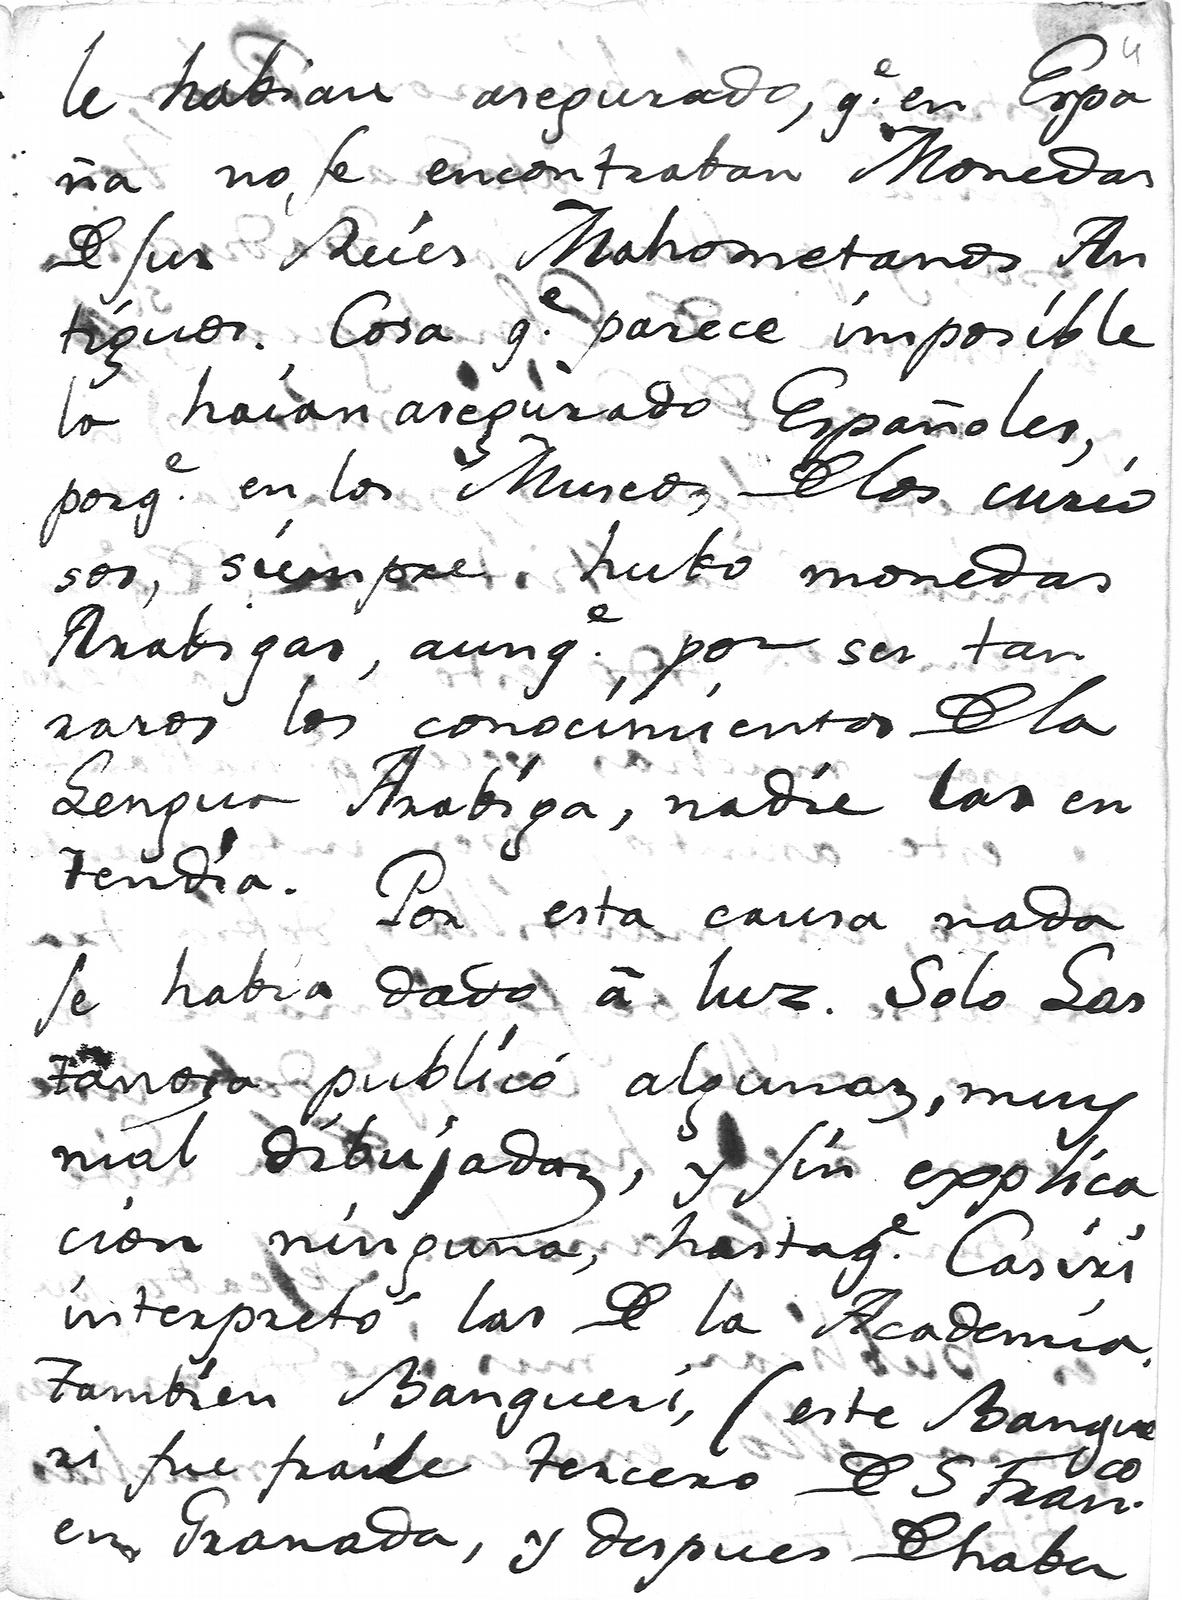 4
le habian asegurado, q.e en Espa
ña no se encontraban Monedas
De sus Reies Mahometanos An
tiguos. Cosa q.e parece imposible
lo haian asegurado Españoles,
porq.e en los Museos De los curio
sos, siempre hubo monedas
Arabigas, aunq.e por ser tan
raros los conocimientos De la
Lengua Arabiga, nadie las en
tendia. Por esta causa nada
se habia dado â luz. Solo Las
tanosa publicó algunas, muy
mal dibujadas, y sin explica
cion ninguna, hasta q.e Casiri
interpretó las De la Academia.
Tambien Bangueri, (este Bangue
ri fue fraile tercero De S Fran.co
en Granada, y despues De haber